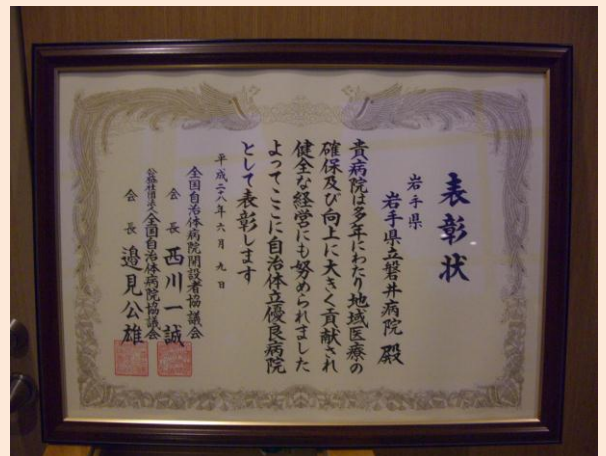 表彰状
岩手県
岩手県立磐井病院 殿
貴病院は多年にわたり地域医療の
確保及び向上に大きく貢献され
健全な経営にも努められました
よってここに自治体立優良病院
として表彰します
平成二十八年六月九日
全国自治体病院開設者協議会
会長 西川一誠
公益社団法人全国自治体病院協議会
会長 邉見公雄